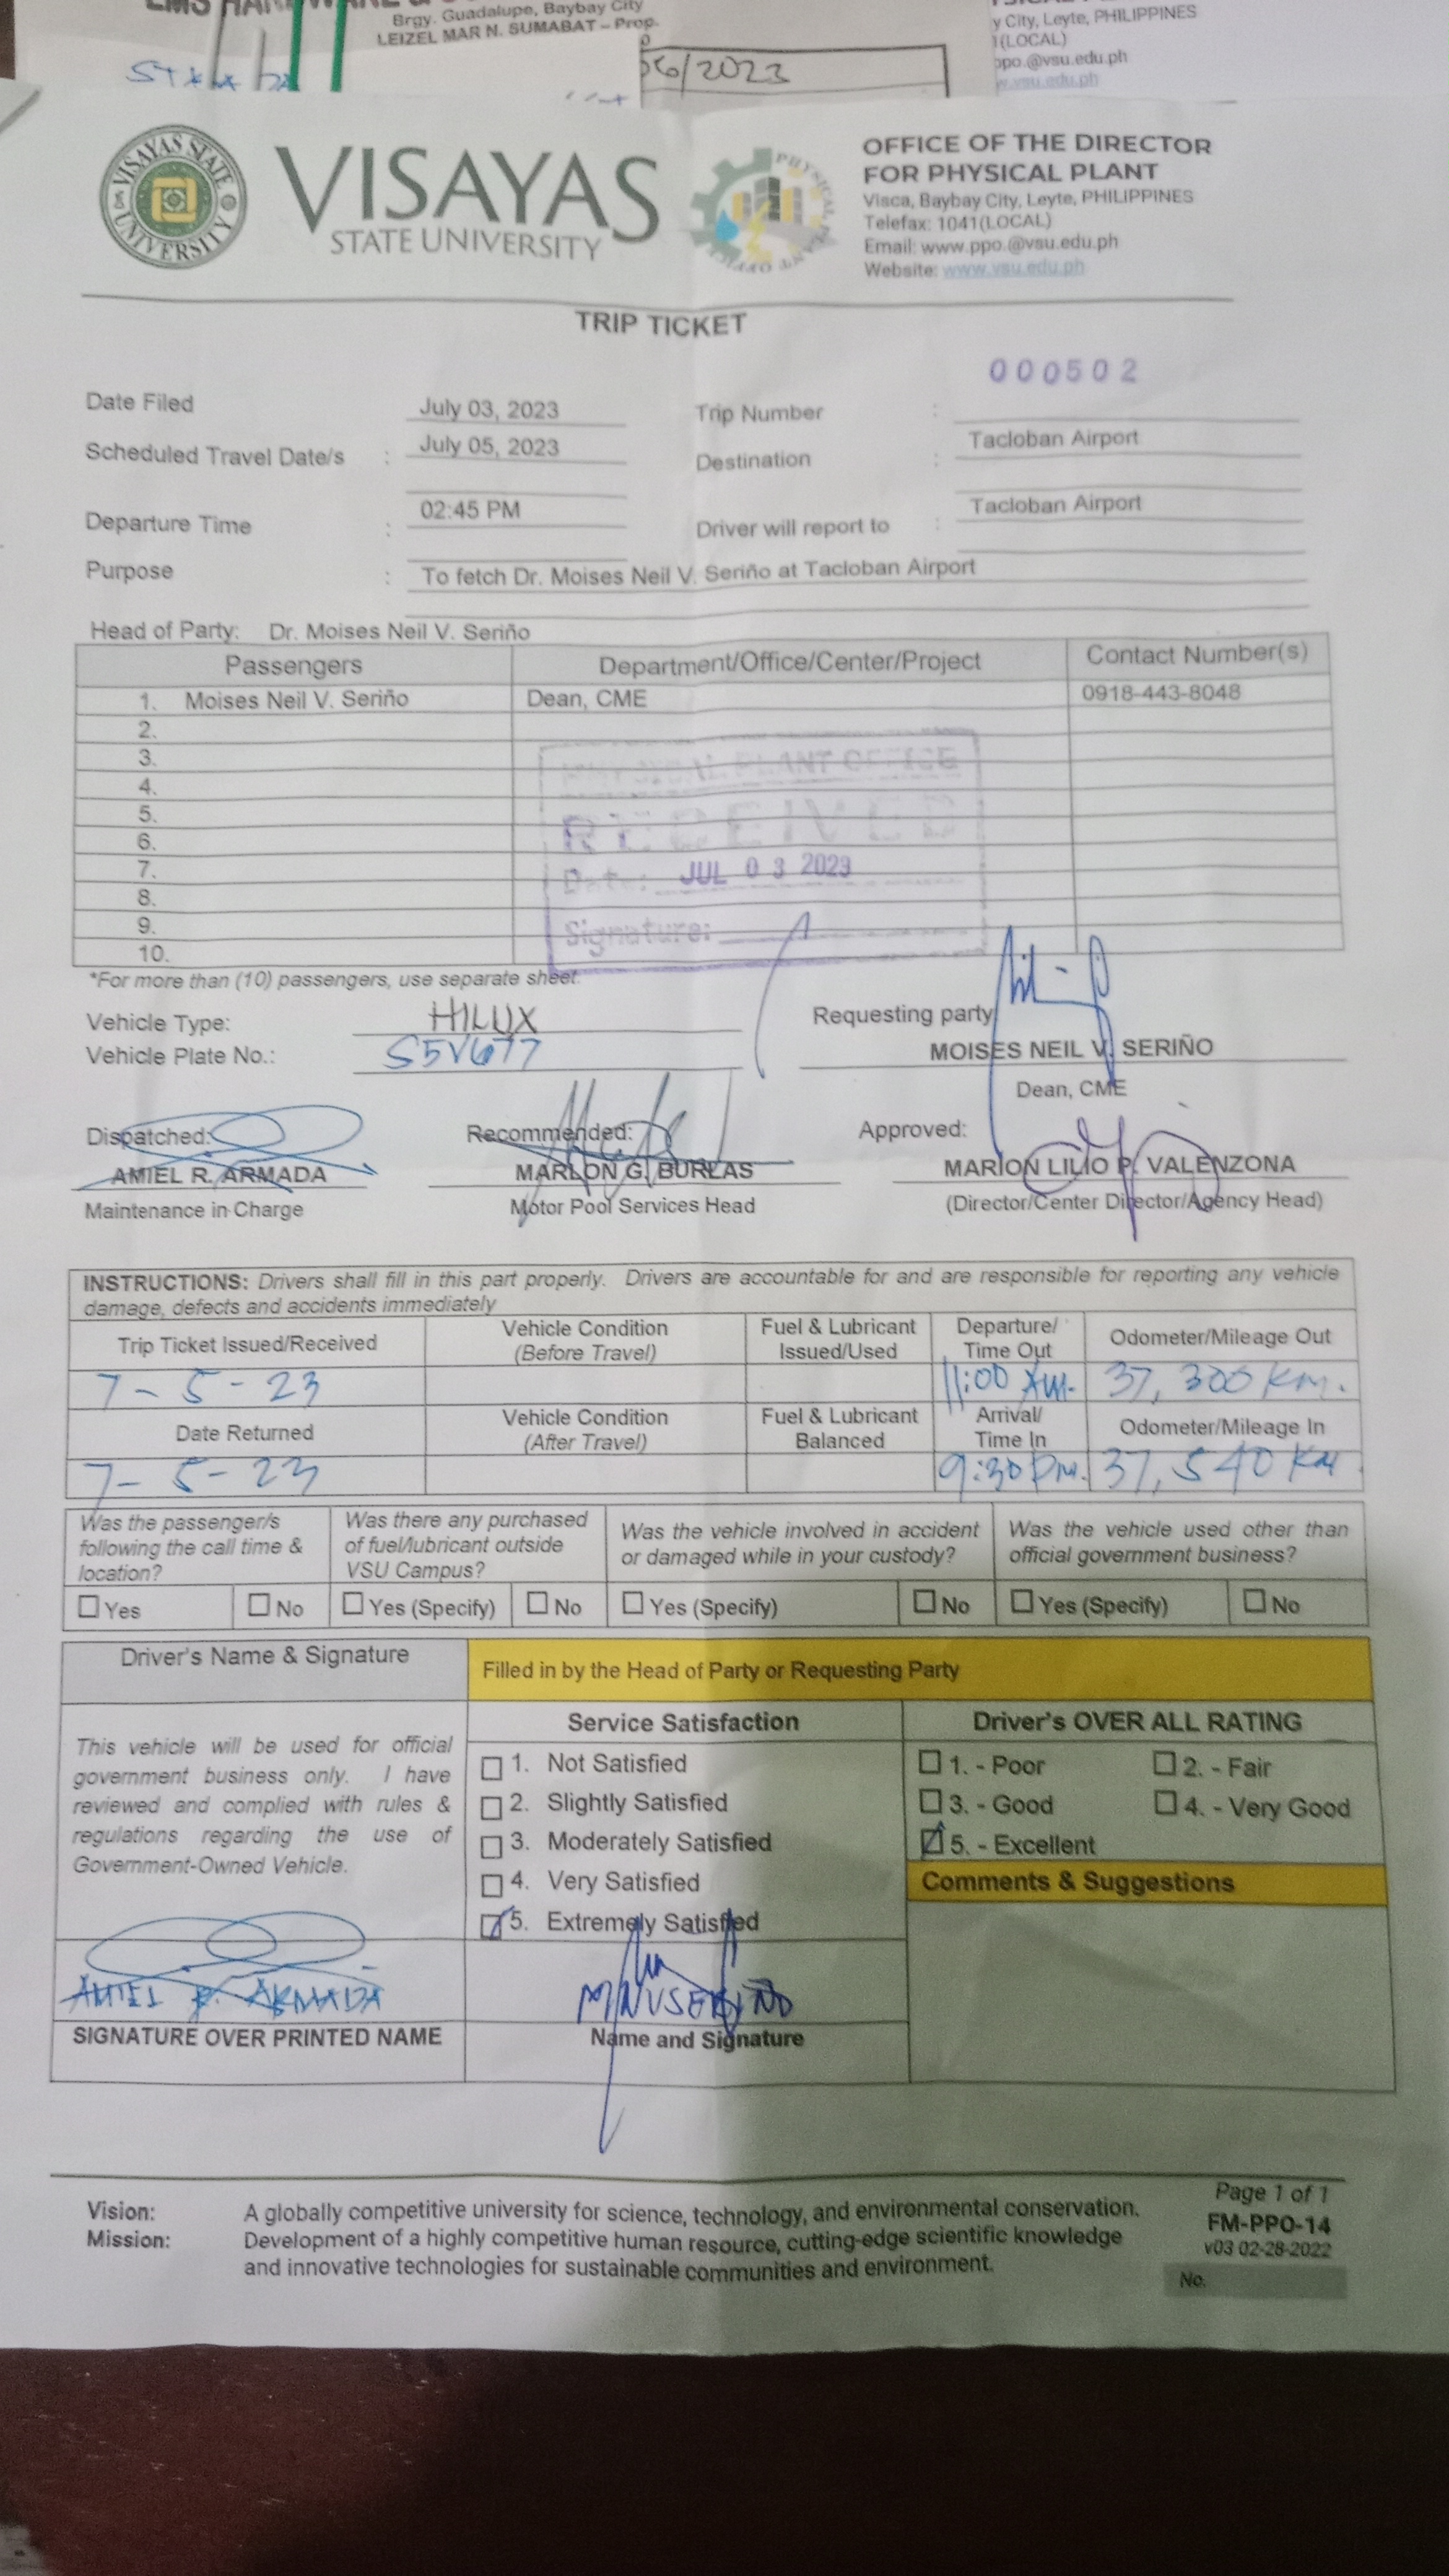 Brgy. Guadalupe, Baybay City
LEIZEL MAR N. SUMABAT – Prop.
y City, Leyte, PHILIPPINES
(LOCAL)
ppo.@vsu.edu.ph
w.vsu.edu.ph
06/2023
VISAYAS STATE UNIVERSITY
VISAYAS
STATE UNIVERSITY
OFFICE OF THE DIRECTOR
FOR PHYSICAL PLANT
Visca, Baybay City, Leyte, PHILIPPINES
Telefax: 1041(LOCAL)
Email: www.ppo.@vsu.edu.ph
Website: www.vsu.edu.ph
TRIP TICKET
000502
Date Filed July 03, 2023 Trip Number :
Scheduled Travel Date/s : July 05, 2023 Destination : Tacloban Airport
Departure Time : 02:45 PM Driver will report to : Tacloban Airport
Purpose : To fetch Dr. Moises Neil V. Seriño at Tacloban Airport
Head of Party: Dr. Moises Neil V. Seriño
Passengers Department/Office/Center/Project Contact Number(s)
1. Moises Neil V. Seriño Dean, CME 0918-443-8048
2.
3.
4.
5.
6.
7.
8.
9.
10.
PHYSICAL PLANT OFFICE
RECEIVED
Date: JUL 03 2023
Signature:
*For more than (10) passengers, use separate sheet.
Vehicle Type: HILUX Requesting party
Vehicle Plate No.: S5V677 MOISES NEIL V. SERIÑO
Dean, CME
Dispatched: Recommended: Approved:
AMIEL R. ARMADA MARLON G. BURLAS MARION LILIO P. VALENZONA
Maintenance in Charge Motor Pool Services Head (Director/Center Director/Agency Head)
INSTRUCTIONS: Drivers shall fill in this part properly. Drivers are accountable for and are responsible for reporting any vehicle
damage, defects and accidents immediately
Trip Ticket Issued/Received Vehicle Condition (Before Travel) Fuel & Lubricant Issued/Used Departure/ Time Out Odometer/Mileage Out
7-5-23 11:00 AM. 37,300 KM.
Date Returned Vehicle Condition (After Travel) Fuel & Lubricant Balanced Arrival/ Time In Odometer/Mileage In
7-5-23 9:30 PM. 37,540 KM
Was the passenger/s following the call time & location? Was there any purchased of fuel/lubricant outside VSU Campus? Was the vehicle involved in accident or damaged while in your custody? Was the vehicle used other than official government business?
Yes No Yes (Specify) No Yes (Specify) No Yes (Specify) No
Driver's Name & Signature Filled in by the Head of Party or Requesting Party
Service Satisfaction Driver's OVER ALL RATING
This vehicle will be used for official
government business only. I have
reviewed and complied with rules &
regulations regarding the use of
Government-Owned Vehicle.
1. Not Satisfied
2. Slightly Satisfied
3. Moderately Satisfied
4. Very Satisfied
5. Extremely Satisfied
1. - Poor 2. - Fair
3. - Good 4. - Very Good
5. - Excellent
Comments & Suggestions
AMIEL R. ARMADA MNVSERIÑO
SIGNATURE OVER PRINTED NAME Name and Signature
Vision: A globally competitive university for science, technology, and environmental conservation.
Mission: Development of a highly competitive human resource, cutting-edge scientific knowledge
and innovative technologies for sustainable communities and environment.
Page 1 of 1
FM-PPO-14
v03 02-28-2022
No.